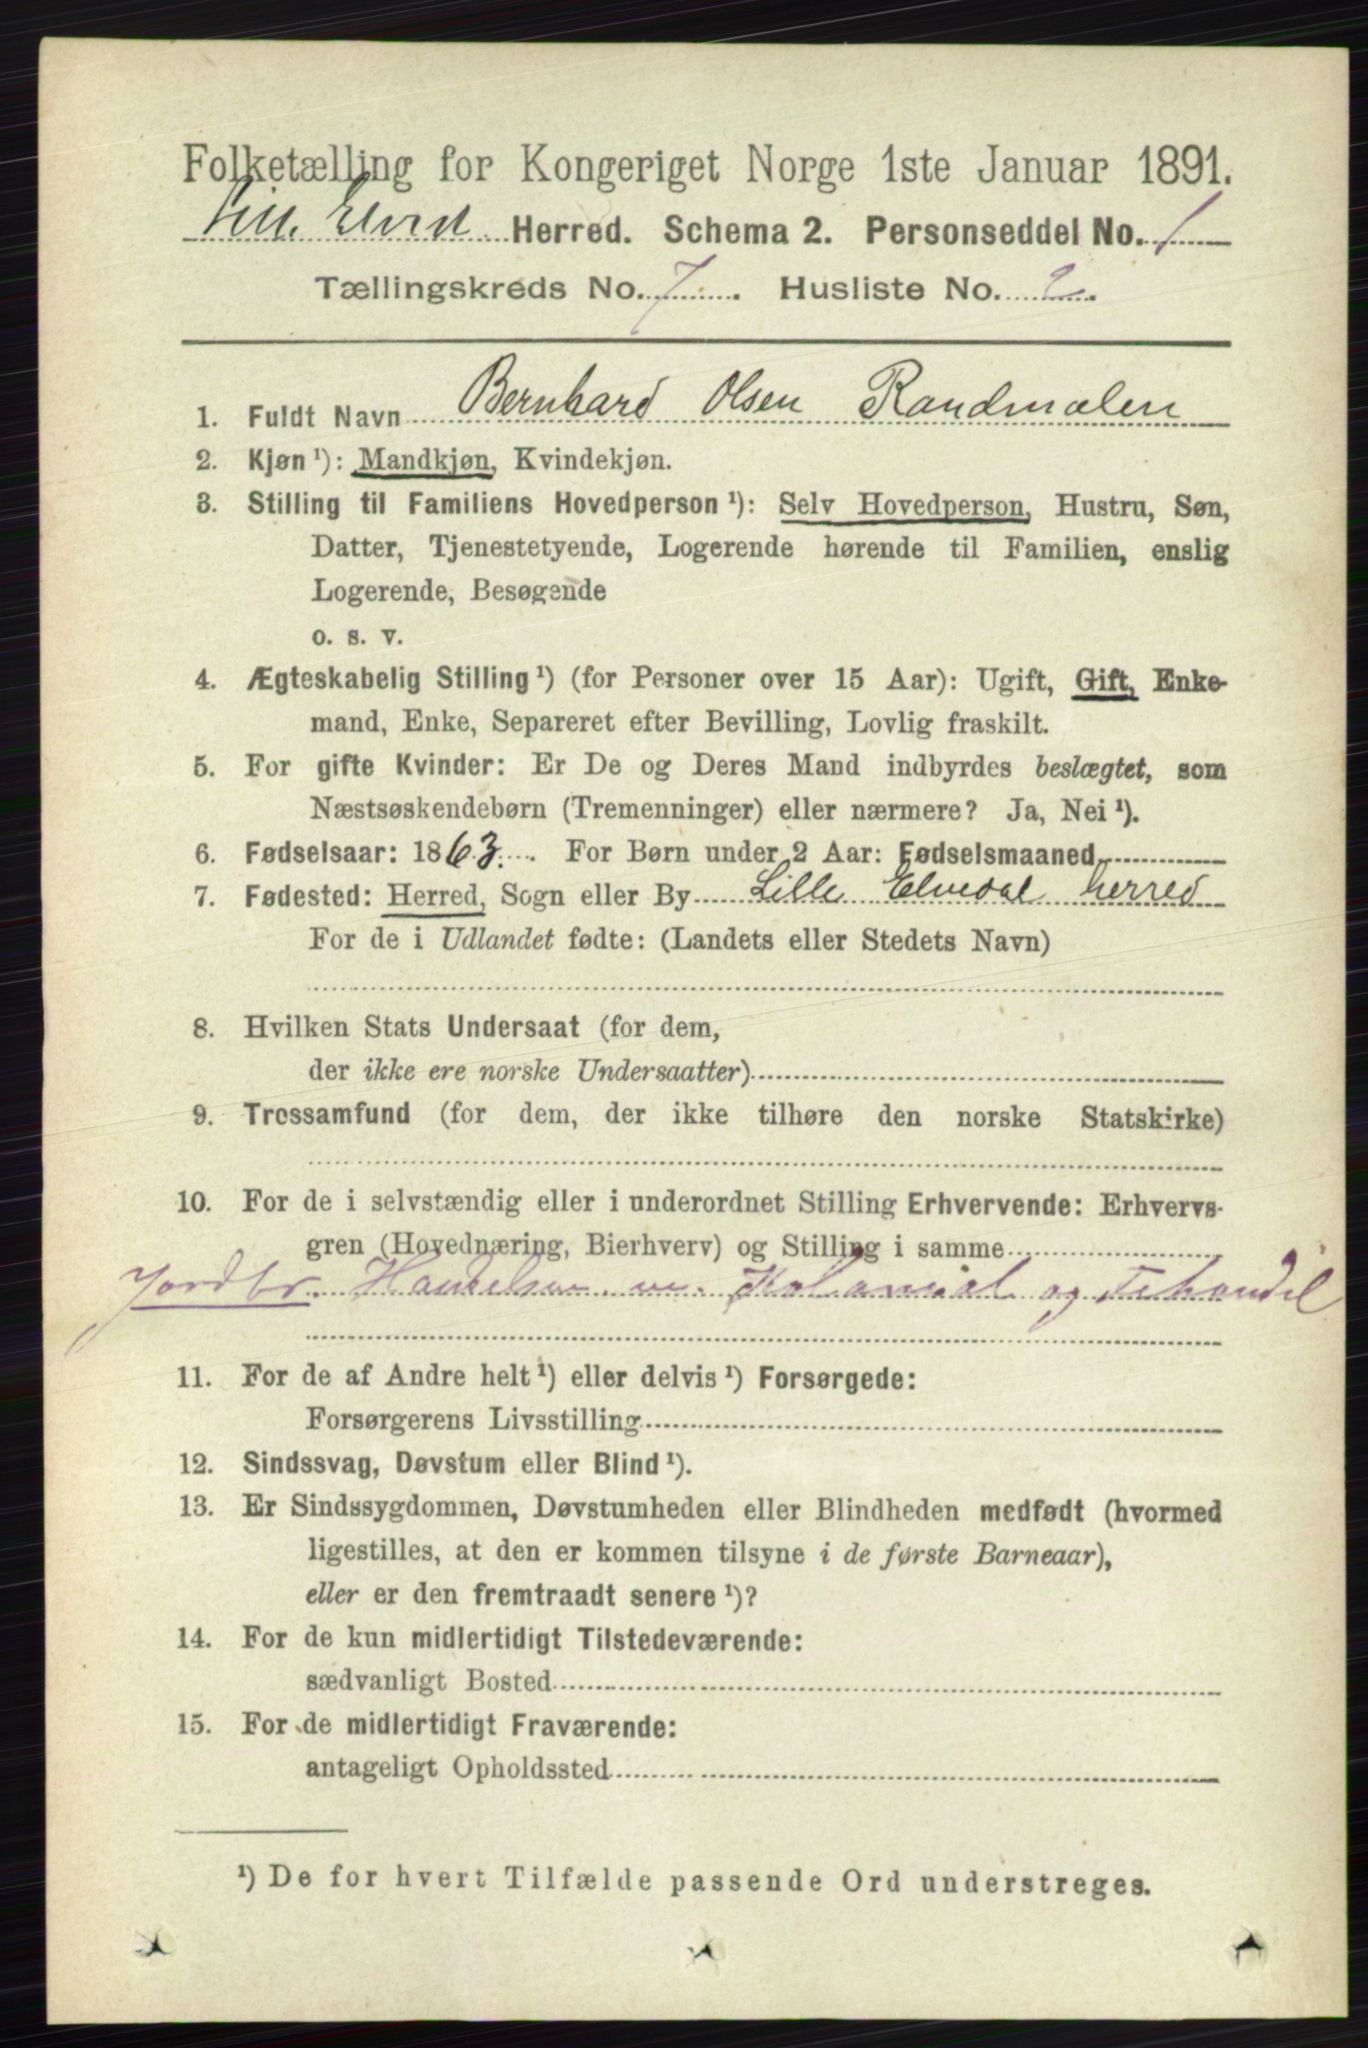 Folketælling for Kongeriget Norge 1ste Januar 1891.
Lill. Elved. Herred. Schema 2. Personseddel No. 1
Tællingskreds No. 7. Husliste No. 2.
1. Fuldt Navn Bernhard Olsen Randmælen
2. Kjøn ¹): Mandkjøn, Kvindekjøn.
3. Stilling til Familiens Hovedperson ¹): Selv Hovedperson, Hustru, Søn,
Datter, Tjenestetyende, Logerende hørende til Familien, enslig
Logerende, Besøgende
o. s. v.
4. Ægteskabelig Stilling ¹) (for Personer over 15 Aar): Ugift, Gift, Enke-
mand, Enke, Separeret efter Bevilling, Lovlig fraskilt.
5. For gifte Kvinder: Er De og Deres Mand indbyrdes beslægtet, som
Næstsøskendebørn (Tremenninger) eller nærmere? Ja, Nei ¹).
6. Fødselsaar: 1863. For Børn under 2 Aar: Fødselsmaaned
7. Fødested: Herred, Sogn eller By Lille Elvedal herred
For de i Udlandet fødte: (Landets eller Stedets Navn)
8. Hvilken Stats Undersaat (for dem,
der ikke ere norske Undersaatter)
9. Trossamfund (for dem, der ikke tilhøre den norske Statskirke)
10. For de i selvstændig eller i underordnet Stilling Erhvervende: Erhvervs-
gren (Hovednæring, Bierhverv) og Stilling i samme
Jordbr. Kolonial og
11. For de af Andre helt ¹) eller delvis ¹) Forsørgede:
Forsørgerens Livsstilling
12. Sindssvag, Døvstum eller Blind ¹).
13. Er Sindssygdommen, Døvstumheden eller Blindheden medfødt (hvormed
ligestilles, at den er kommen tilsyne i de første Barneaar),
eller er den fremtraadt senere ¹)?
14. For de kun midlertidigt Tilstedeværende:
sædvanligt Bosted
15. For de midlertidigt Fraværende:
antageligt Opholdssted
¹) De for hvert Tilfælde passende Ord understreges.